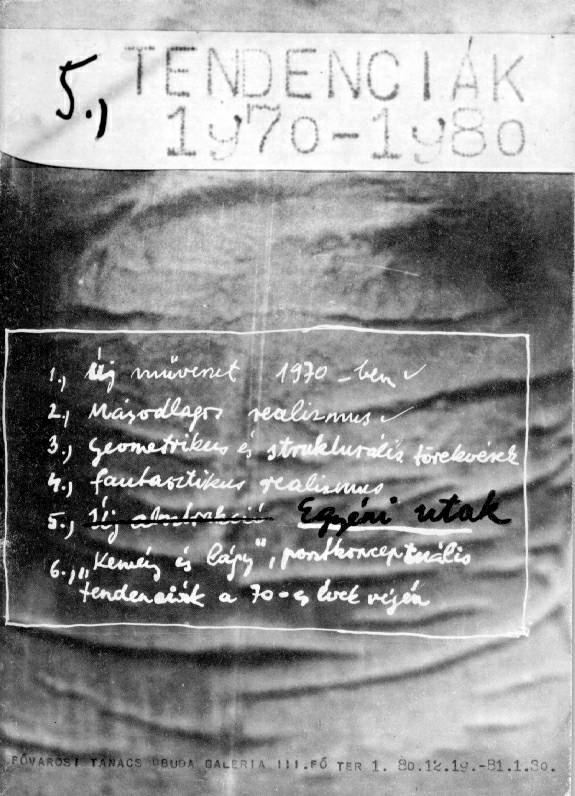 5., TENDENCIÁK
1970-1980
1., Új művészet 1970-ben ✓
2., Másodlagos realizmus ✓
3., Geometrikus és strukturális törekvések
4., fantasztikus realizmus
5., Új absztrakció Egyéni utak
6., „Kemény és lágy", posztkonceptuális
tendenciák a 70-es évek végén
FŐVÁROSI TANÁCS ÓBUDA GALÉRIA III.FŐ TÉR 1. 80.12.19.-81.1.30.